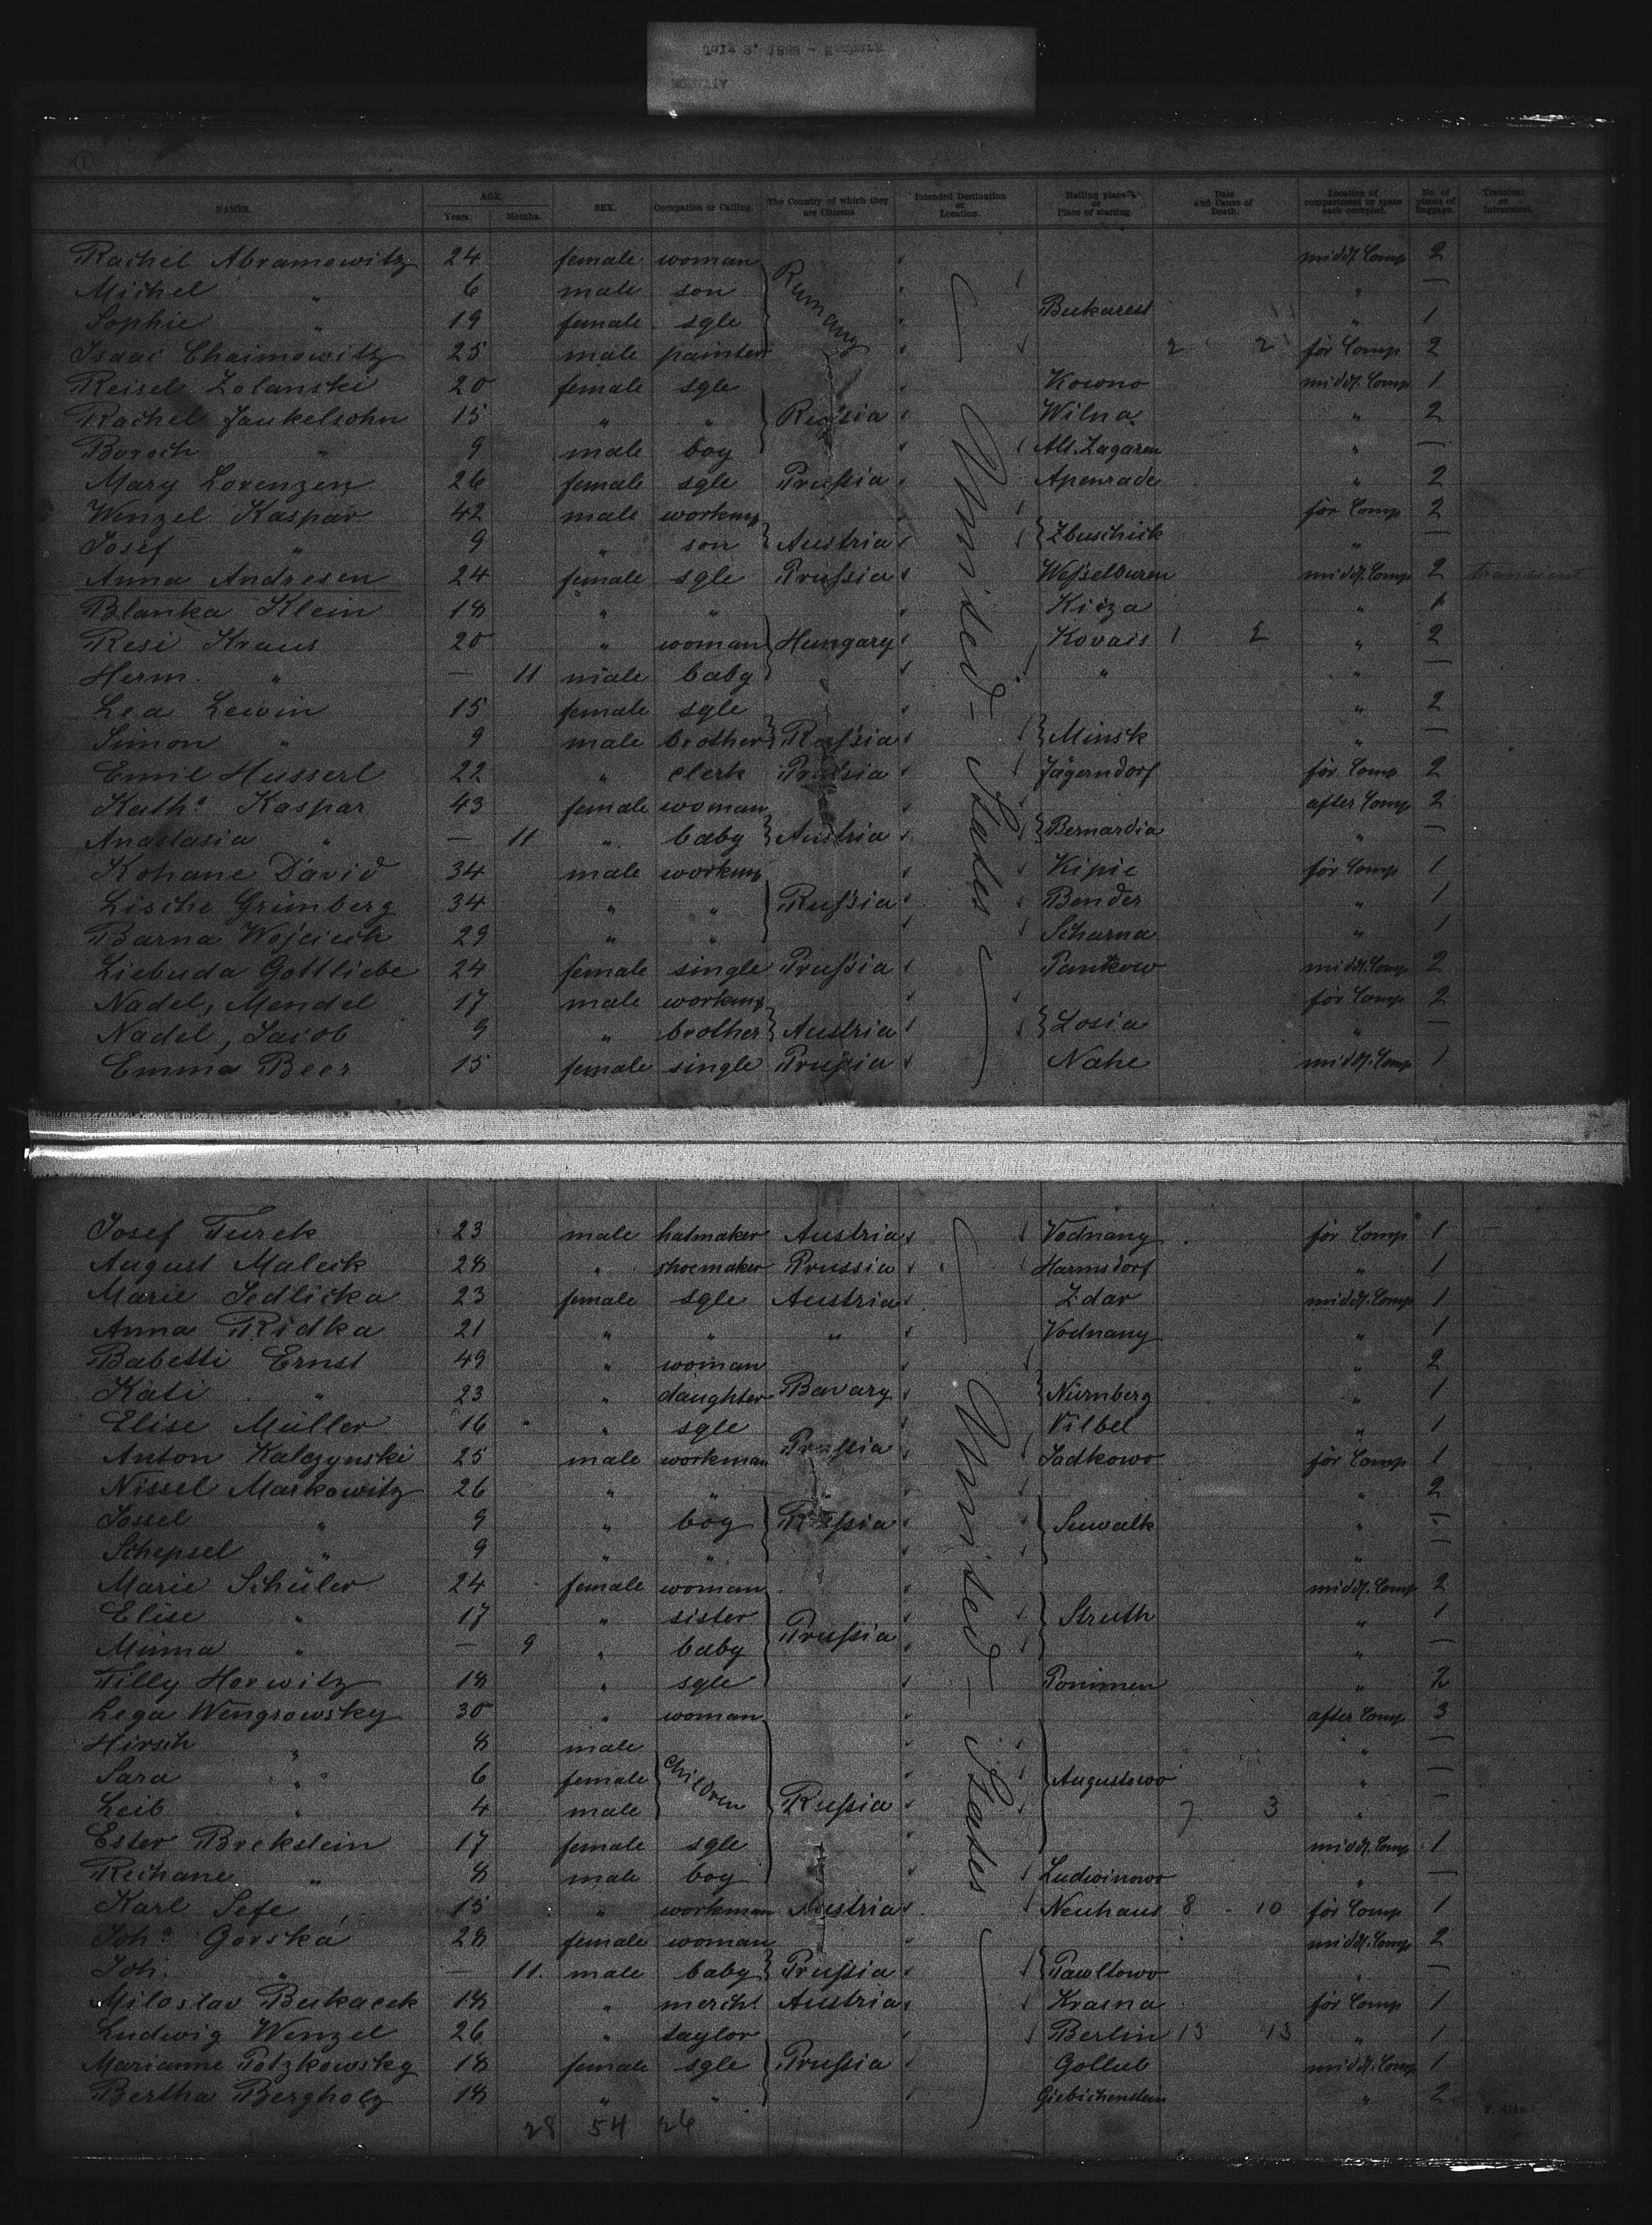 NAMES. AGE. Years. Months. SEX. Occupation or Calling. The Country of which they are Citizens Intended Destination or Location. Hailing place or Place of starting. Date and Cause of Death. Location of compartment or space each occupied. No. of pieces of Baggage. Transient or Intransient.
Rachel Abramowitz 24 female woman middl. Comp 2
Michel " 6 male son Rumany " —
Sophie " 19 female sgle Bukarest " 1
Isaac Chaimowitz 25 male painter 2 2 för Comp 2
Reisel Zolanski 20 female sgle Kowno middl. Comp 1
Rachel Jankelsohn 15 " " Rußia Wilna " 2
Boroch " 9 male boy Alt. Zagaren " —
Mary Lorenzen 26 female sgle Prußia Apenrade " 2
Wenzel Kaspar 42 male workmn för Comp 2
Josef " 9 " son } Austria } Zbuschick " —
Anna Andresen 24 female sgle Prußia Weßelburen middl. Comp 2 transient
Blanka Klein 18 " " Kicza " 1
Resi Kraus 20 " woman Hungary Kovais 1 2 " 2
Herm. " — 11 male baby " " —
Lea Lewin 15 female sgle " 2
Simon " 9 male brother } Rußia } Minsk " —
Emil Husserl 22 " clerk Prußia Jägerndorf för Comp 2
Kath.a Kaspar 43 female woman after Comp 2
Anastasia " — 11 " baby } Austria } Bernardia " —
Kohane David 34 male workmn Kipie för Comp 1
Lische Grünberg 34 " " Rußia Bender " 1
Barna Wojciech 29 " " Scharna " 1
Liebuda Gottliebe 24 female single Prußia Pankow middl. Comp 2
Nadel, Mendel 17 male workmn för Comp 2
Nadel, Jacob 9 " brother } Austria } Losia " —
Emma Beer 15 female single Prußia Nahe middl. Comp 1
United States
Josef Turek 23 male hatmaker Austria Vodnany för Comp 1
August Malcik 28 " shoemaker Prussia Harmsdorf " 1
Marie Jedlicka 23 female sgle Austria Zdar middl. Comp 1
Anna Ridka 21 " " " Vodnany " 1
Babetti Ernst 49 " woman " 2
Käti " 23 " daughter Bavary } Nürnberg " 1
Elise Müller 16 " sgle Vilbel " 1
Anton Kalczynski 25 male workman Prußia Sadkowo för Comp 1
Nissel Markowitz 26 " " " 2
Jossel " 9 " boy Rußia Suwalk " —
Schepsel " 9 " " " —
Marie Schüler 24 female woman middl. Comp 2
Elise " 17 " sister Struth " 1
Minna " — 9 " baby Prußia " —
Tilly Horwitz 18 " sgle Pommen " 2
Lega Wengrowsky 30 " woman after Comp 3
Hirsch " 8 male " —
Sara " 6 female children Augustowo " —
Leib " 4 male Rußia 7 3 " —
Ester Brekstein 17 female sgle middl. Comp 1
Reihane " 8 male boy Ludwinowo " —
Karl Sefe 15 " workman Austria Neuhaus 8 10 för Comp 1
Joh.a Gorska 28 female woman middl. Comp 2
Joh. " — 11 male baby } Prußia } Pawltowo " —
Miloslav Bukacek 18 " mercht Austria Krasna för Comp 1
Ludwig Wenzel 26 " taylor Berlin 13 13 " 1
Marianne Potzkowsky 18 female sgle Prußia Gollub middl. Comp 1
Bertha Bergholz 18 " " Giebichenstein " 2
United States
28 54 26